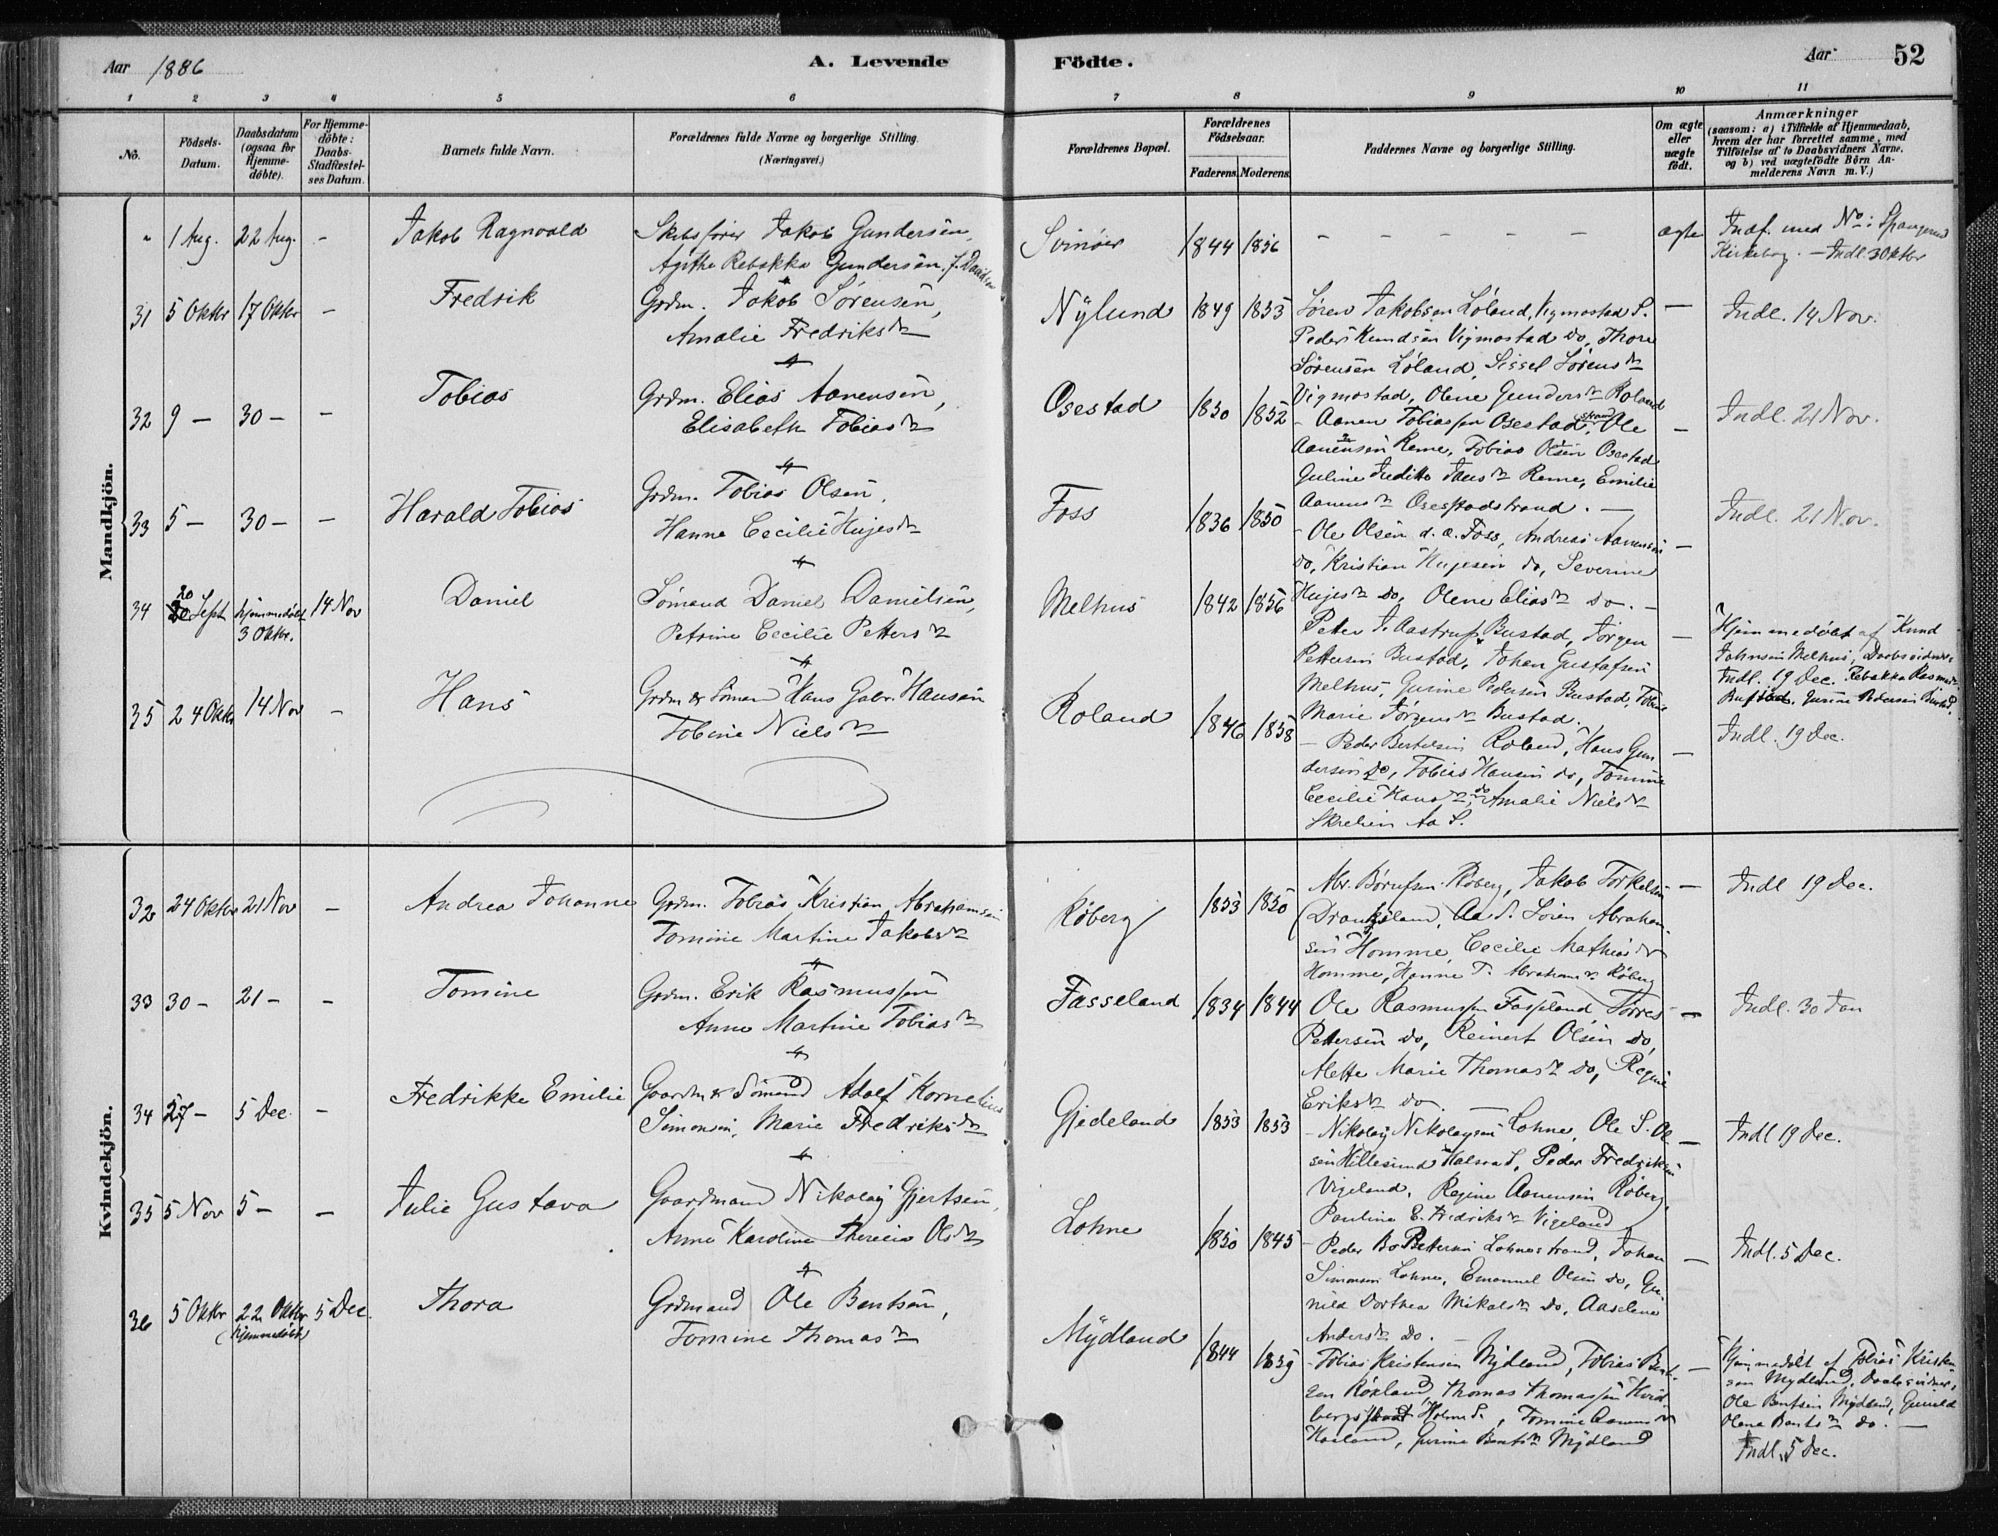 Aar 1886
A. Levende
Födte.
Aar
52
1 2 3 4 5 6 7 8 9 10 11
No.
Födsels-Datum.
Daabsdatum (ogsaa for Hjemme-döbte).
For Hjemme-döbte: Daabs-Stadfæstel-ses Datum.
Barnets fulde Navn.
Forældrenes fulde Navne og borgerlige Stilling.
(Næringsvei.)
Forældrenes Bopæl.
Forældrenes Födselsaar.
Faderens. Moderens.
Faddernes Navne og borgerlige Stilling.
Om ægte eller uægte födt.
Anmærkninger
(saasom: a) i Tilfælde af Hjemmedaab, hvem der har forrettet samme, med Tilföielse af to Daabsvidners Navne, og b) ved uægtefödte Börn An-melderens Navn m. V.)
Mandkjön.
" 1 Aug. 22 Aug. - Jakob Ragnvald
Skibsfører Jakob Gundersen,
Agithe Rebekka Gundersen, f. Davidsen
Svinøer 1844 1856 - - - - - - ægte
Indf. med No: Spangereid
Kirkebog. - Indl. 3 Oktbr
31 5 Oktbr 17 Oktbr - Fredrik
Grdm. Jakob Sørensen,
Amalie Fredriksdr
Nÿlund 1849 1853
Søren Jakobsen Løland, Vigmostad S.
Peder Knudsen Vigmostad do, Thore
Sørensen Løland, Sissel Sørensdr
Vigmostad, Olene Gundersdr Roland
- Indl. 14 Nov.
32 9 - 30 - - Tobias
Grdm. Elias Aanensen,
Elisabeth Tobiasdr
Osestad 1850 1852
- Aanen Tobiassen Osestadstrand, Ole
Aanensen Reme, Tobias Olsen Osestad
Guline Judithe Jansdr Reme, Emilie
Aanensdr Osestadstrand. -
- Indl. 21 Nov.
33 5 - 30 - - Harald Tobias
Grdm. Tobias Olsen,
Hanne Cecilie Hujesdr
Foss 1836 1850
- Ole Olsen d. æ. Foss, Andreas Aanensen
do, Kristian Hujesen do, Severine
Hujesdr do, Olene Eliasdr do. -
- Indl. 21 Nov.
34 20 Sept hjemmedøbt 3 Oktbr. 14 Nov Daniel
Sømand Daniel Danielsen,
Petrine Cecilie Pettersdr
Melhus 1842 1856
Peter J. Aastrup Bustad, Jørgen
Pettersen Bustad, Johan Gustafsen
Melhus, Gurine Pedersen Bustad, Tobine
Marie Jørgensdr Bustad.
- Hjemmedøbt af Knud
Johnsen Melhus, Daabsvidner,
Indl. 19 Dec. Rebekka Rasmus
Bustad, Gurine Pedersen Bustad.
35 24 Oktbr 14 Nov - Hans
Grdm & Sømand Hans Gabr. Hansen
Tobine Nielsdr
Roland 1846 1858
- Peder Bertelsen Roland, Hans Gun
dersen do, Tobias Hansen do, Tomine
Cecilie Hansdr do, Amalie Nielsdr
Skrelien Aa S.
- Indl. 19 Dec.
Kvindekjön.
32 24 Oktbr 21 Nov - Andrea Johanne
Grdm. Tobias Kristian Abrahamsen
Tomine Martine Jakobsdr
Røberg 1853 1850
Abr. Børufsen Røberg, Jakob Torkelsen
Drangsland, Aa S. Søren Abraham
sen Homme, Cecilie Mathiasdr
Homme, Hanne T. Abrahamsdr Røberg
- Indl 19 Dec.
33 30 - 21 - - Tomine
Grdm. Erik Rasmussen
Anne Martine Tobiasdr
Fasseland 1834 1844
Ole Rasmussen Fasseland Torres
Pettersen do, Reinert Olsen do,
Alette Marie Thomasdr do, Regine
Eriksdr do.
- Indl. 30 Jan
34 27 - 5 Dec. - Fredrikke Emilie
Gaardm & Sømand Adolf Kornelius
Simonsen, Marie Fredriksdr
Gjedeland 1853 1853
- Nikolaÿ Nikolaysen Lohne, Ole S. Ol
sen Hillesund Halsaa S, Peder Fredriksen
Vigeland, Regine Aanensen Røberg,
Pauline E. Fredriksdr Vigeland
- Indl 19 Dec.
35 5 Nov 5 - - Julie Gustava
Gaardmand Nikolaÿ Gjertsen,
Anne Karoline Theresia Olsdr
Lohne 1850 1845
- Peder Bo Pettersen Lohnestrand, Johan
Simonsen Lohne, Emanuel Olsen do, Gu
nild Dorthea Mikalsdr do, Aaselene
Andersdr do. -
- Indl. 5 Dec.
36 5 Oktbr 22 Oktbr (hjemmedøbt) 5 Dec. Thora
Grdmand Ole Bentsen,
Tomine Thomasdr
Mÿdland 1844 1859
- Tobias Kristensen Mÿdland, Tobias Bent-
sen Røxland, Thomas Thomassen Kvid
bergstrand Holme S., Tomine Aanensdr
Haaland, Gurine Bentsdr Mÿdland
- Hjemmedøbt af Tobias Kristen
sen Mydland, Daabsvidner,
Ole Bentsen Mÿdland, Gunild
Olene Bentsdr do. -
Indl. 5 Dec.